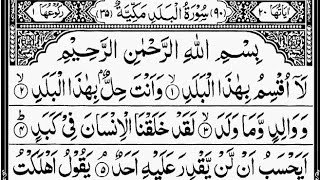 اٰیَاتُهَا ٢٠ (٩٠) سُوْرَةُ الْبَلَدِ مَكِّیَّةٌ (٣٥) رُكُوْعُهَا ١
بِسْمِ اللّٰهِ الرَّحْمٰنِ الرَّحِیْمِ
لَاۤ اُقْسِمُ بِهٰذَا الْبَلَدِ ۙ﴿١﴾ وَاَنْتَ حِلٌّۢ بِهٰذَا الْبَلَدِ ۙ﴿٢﴾
وَ وَالِدٍ وَّمَا وَلَدَ ۙ﴿٣﴾ لَقَدْ خَلَقْنَا الْاِنْسَانَ فِیْ كَبَدٍ ؕ﴿٤﴾
اَیَحْسَبُ اَنْ لَّنْ یَّقْدِرَ عَلَیْهِ اَحَدٌ ۘ﴿٥﴾ یَقُوْلُ اَهْلَكْتُ